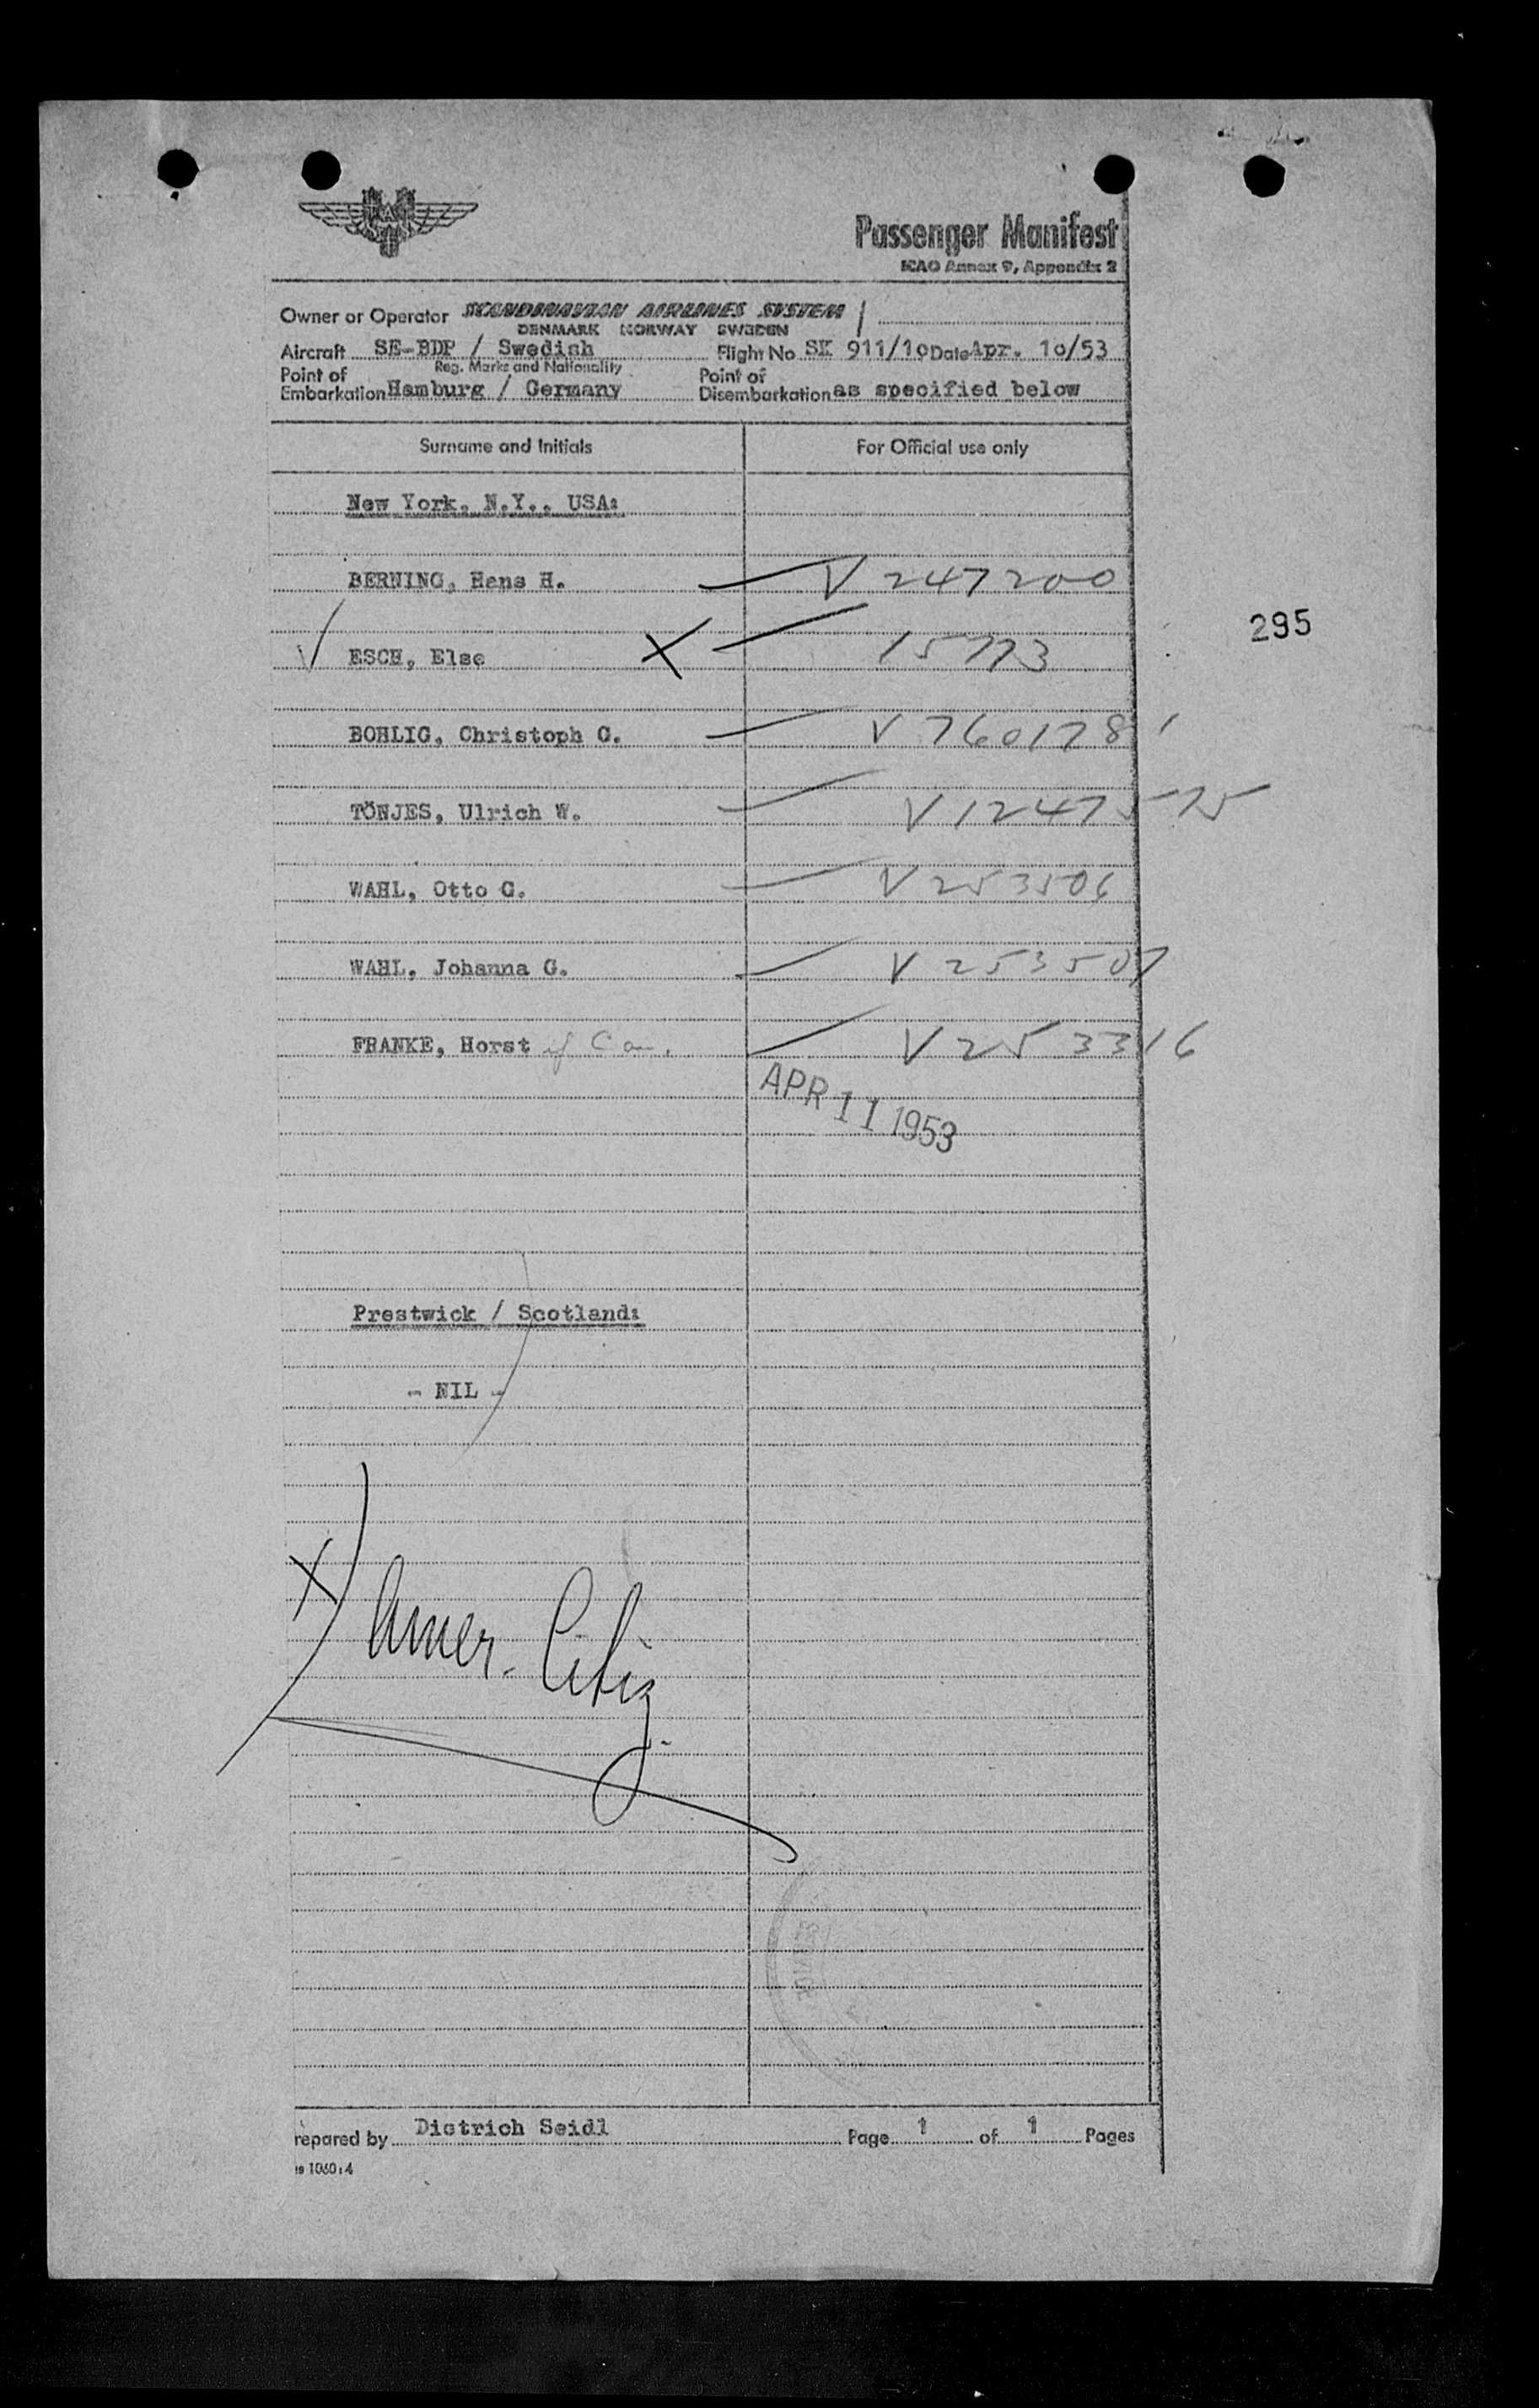 SAS
Passenger Manifest
ICAO Annex 9, Appendix 2
Owner or Operator SCANDINAVIAN AIRLINES SYSTEM
DENMARK NORWAY SWEDEN
Aircraft SE-BDP / Swedish Flight No SK 911/10 Date Apr. 10/53
Reg. Marks and Nationality
Point of Embarkation Hamburg / Germany Point of Disembarkation as specified below
Surname and Initials For Official use only
New York, N.Y., USA:
BERNING, Hans H. V 247200
295
ESCH, Else X 15773
BOHLIG, Christoph G. V 760178
TÖNJES, Ulrich W. V 1247575
WAHL, Otto G. V 253506
WAHL, Johanna G. V 253507
FRANKE, Horst V 253316
APR 11 1953
Prestwick / Scotland:
- NIL -
X) Amer. Citiz.
repared by Dietrich Seidl Page 1 of 1 Pages
1060:4